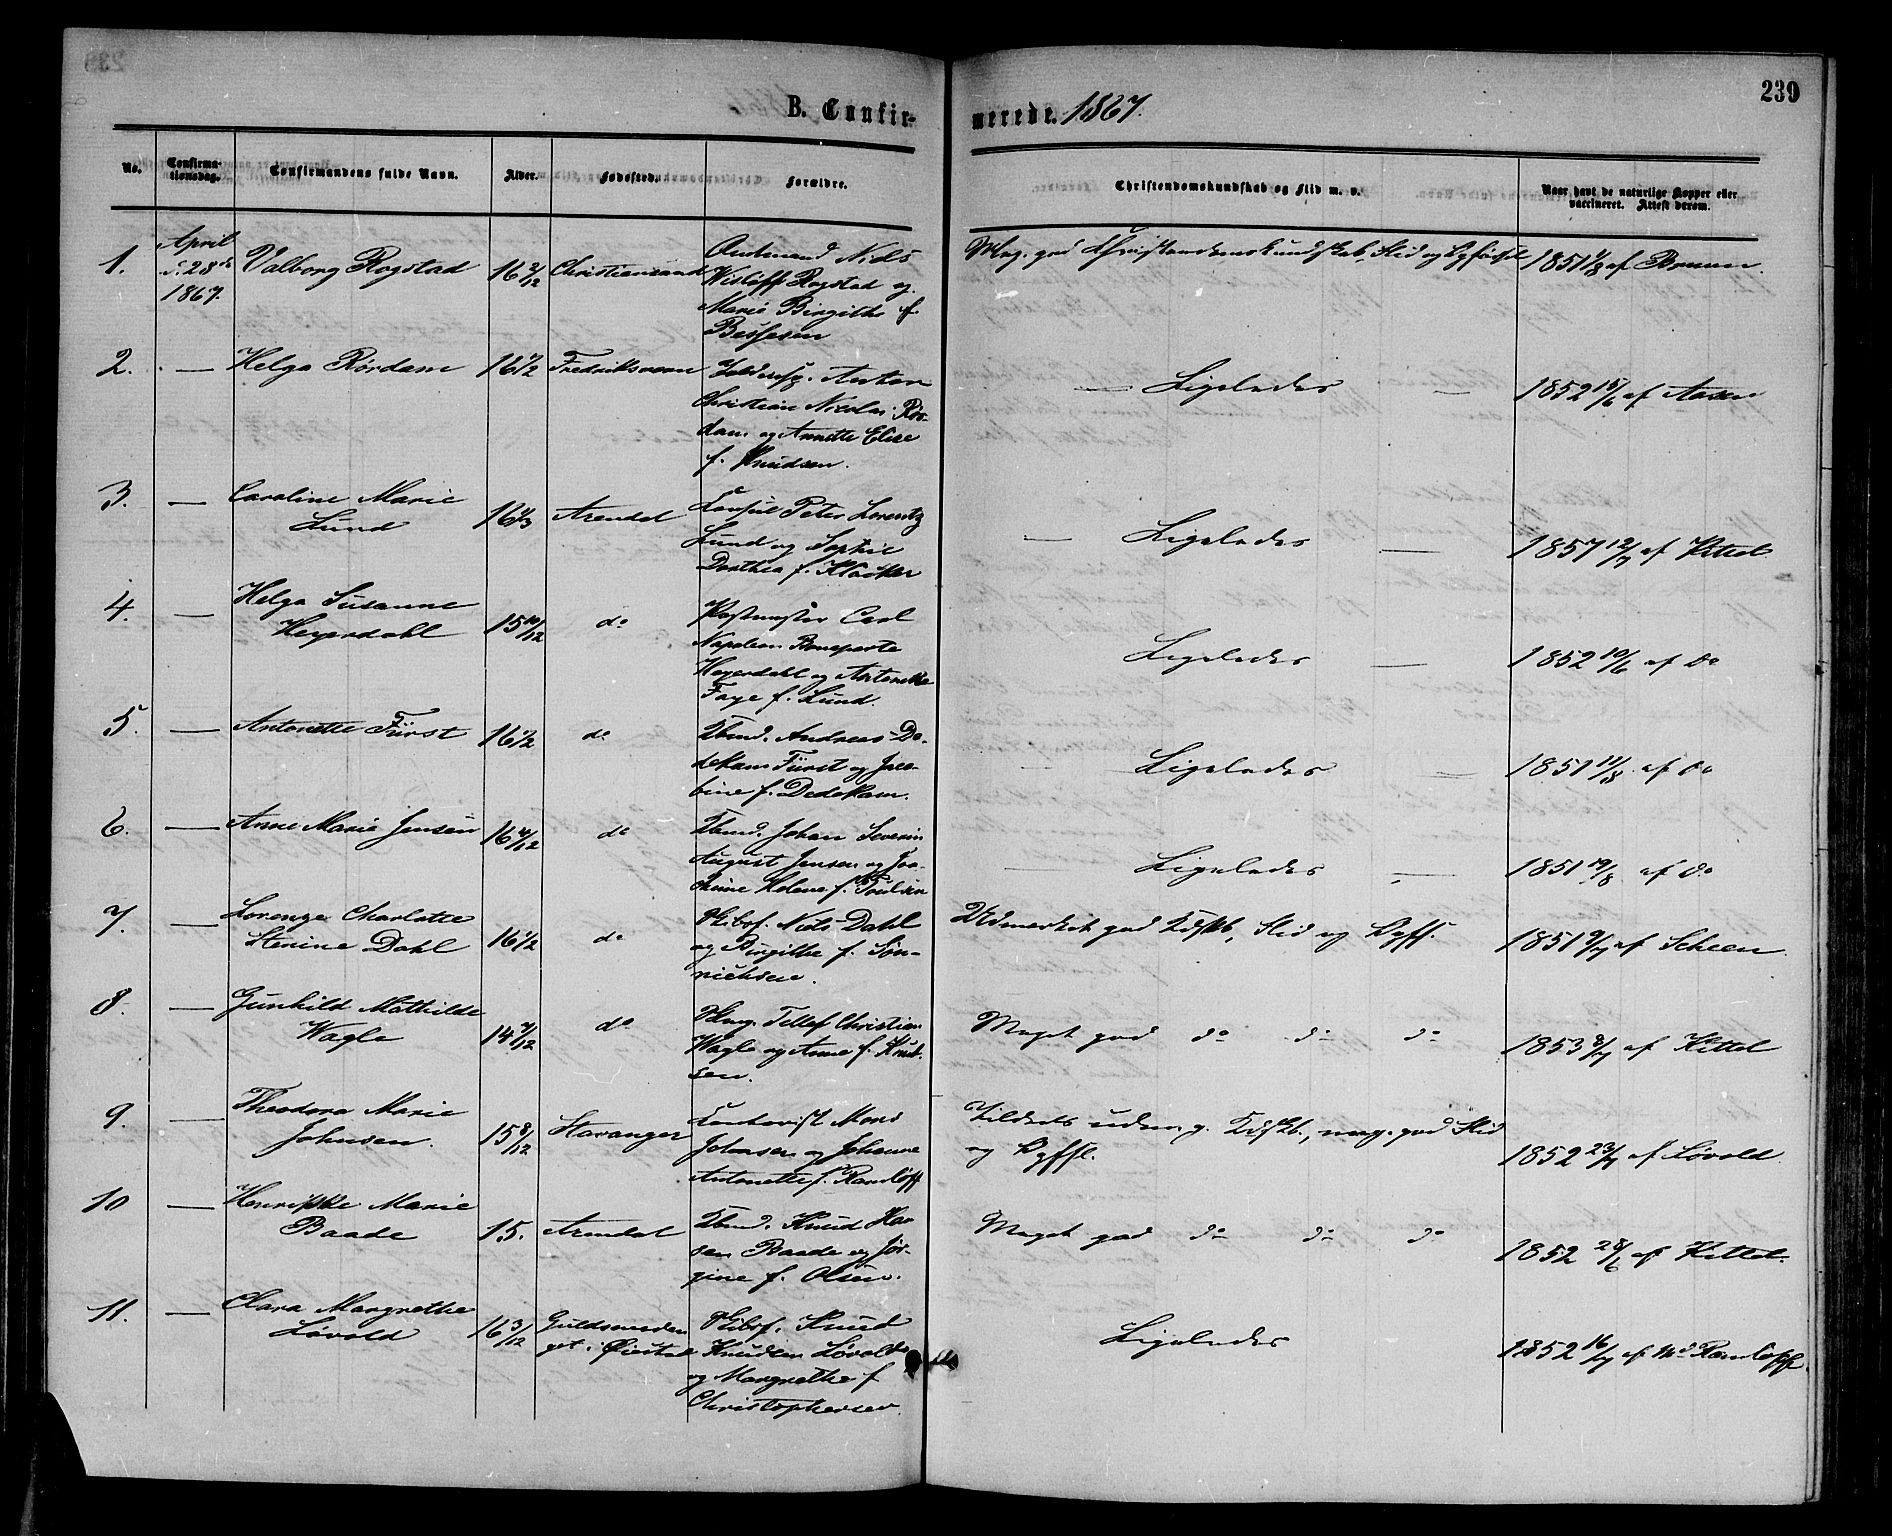 239
B. Confirmerede. 1867.
No.
Confirmationsdag.
Confirmandens fulde Navn.
Alder.
Fødested.
Forældre.
Christendomskundskab og Flid m. v.
Naar havt de naturlige Kopper eller
vaccineret. Attest derom.
1. April d. 28de 1867. Valborg Rogstad 16 2/12 Christianssand
Amtmand Niels
Wisløff Rogstad og
Marie Birgithe f.
Bessesen
Meg. god Christendomskundskab, Flid og Opførsel
1851 1/8 af Bruun.
2. — Helga Rørdam 16 1/2 Fredriksværn
Toldinsp. Anton
Christian Nicolai Rør-
dam og Annette Elise
f. Knudsen.
— Ligeledes —
1852 15/6 af Aasen
3. — Caroline Marie
Lund 16 1/3 Arendal
Consul Peter Lorentz
Lund og Sophie
Dorthea f. Klöcker
— Ligeledes —
1857 12/7 af Kittel
4. — Helga Susanne
Heyerdahl 15 10/12 do
Postmester Carl
Napoleon Bonaparte
Heyerdahl og Antonette
Faye f. Lund.
Ligeledes —
1852 10/6 af do
5. — Antonette Fürst 16 1/2 do
Kbmd. Andreas De-
dekam Fürst og Jaco-
bine f. Dedekam.
— Ligeledes —
1851 11/8 af do
6. — Anne Marie Jensen 16 4/12 do
Kbmd. Johan Severin
August Jensen og Joa-
chime Helene f. Poulsen
— Ligeledes —
1851 19/8 af do
7. — Lorenze Charlotte
Stenine Dahl 16 1/2 do
Skibsf. Niels Dahl
og Birgithe f. Søn-
nichsen.
Udmærket god Kdskb, Flid og Opff.
1851 9/7 af Scheen
8. — Gunhild Mathilde
Wagle 14 7/12 do
Tellef Christian
Wagle og Anne f. Knut-
sen.
Meget god do do do
1853 8/7 af Kittel
9. — Theodora Marie
Johnsen. 15 8/12 Stavanger
Contorist Mons
Johnsen og Johanne
Antonette f. Ramløff
Tildels udm. g. Kdskb., meg. god Flid
og Opffl.
1852 23/7 af Løvold.
10 — Henrikke Marie
Baade 15. Arendal
Kbmd. Knud Han
sen Baade og Jør-
gine f. Olsen.
Meget god do do do
1852 28/6 af Kittel.
11. — Clara Margrethe
Løvold 16 3/12 Guldsmeden
get. i Øiestad
Skibsf. Knud
Knudsen Løvold
og Margrethe f
Christophersen.
Ligeledes
1852 16/7 af Md Ramløff